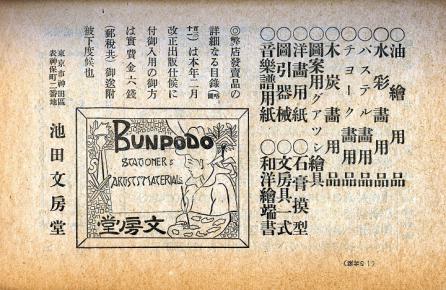 油繪用品
水彩畫用品
パステル畫用品
チョーク畫用品
木炭畫用品
圖案用グアッシ繪具
洋畫用紙 石膏摸型
圖引器械 文房具一式
音樂譜用紙 和洋繪端書
◎弊店發賣品の
詳細なる目錄
は本年二月
改正出版仕候に
付御入用の御方
は實費金六錢
(郵稅共)御送附
被下度候也
東京市神田區
表神保町二番地
池田文房堂
BUNPODO
STATIONER &
ARTISTS MATERIAL
堂房文